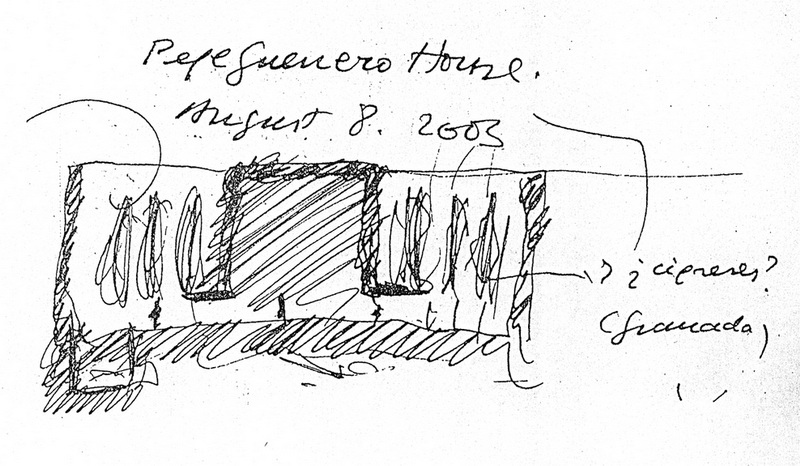 Pepe Guerrero House.
August 8. 2003
? ¿cipreses?
(Granada)